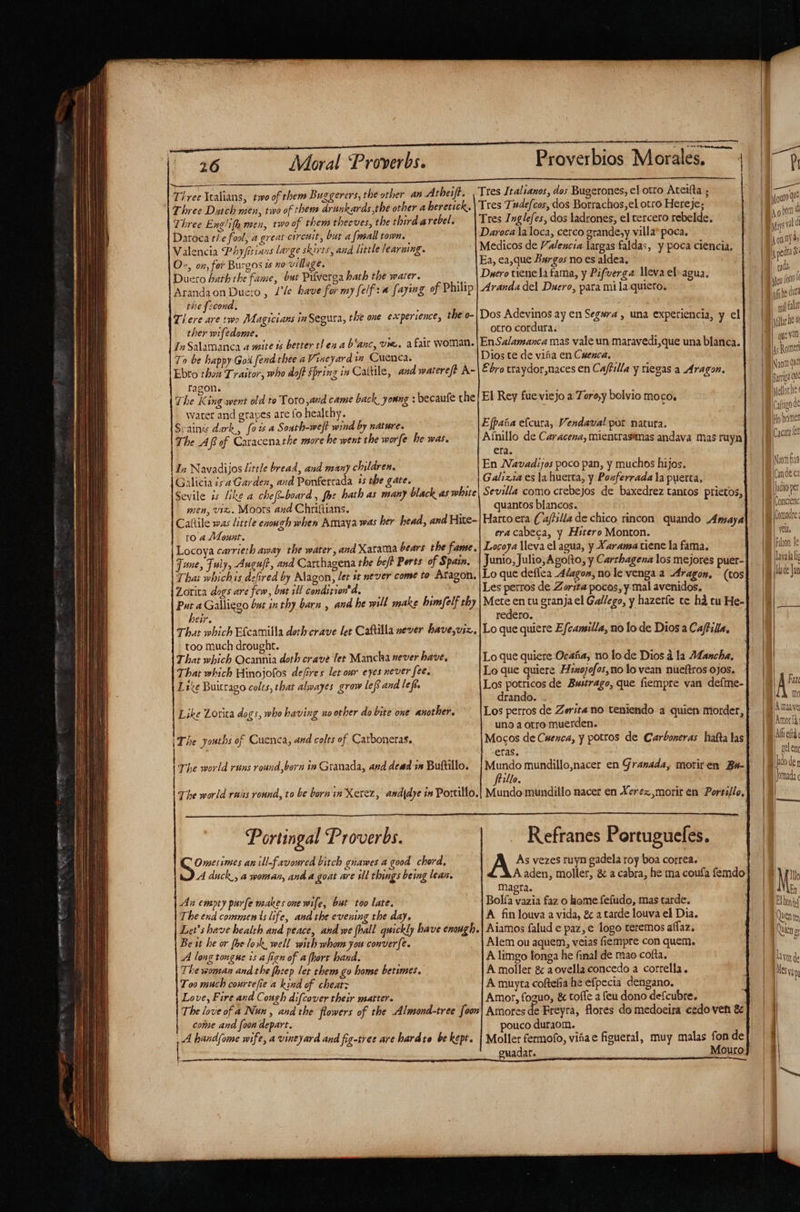 26 Moral Proverbs.
Three Italians, two of them Buggerers, the other an Atheist.
Three Dutch men, two of them drunkards, the other a heretick.
Three English men, two of them theeves, the third a rebel.
Daroca the fool, a great circuit, but a small town.
Valencia Physitians large skirts, and little learning.
On, on, for Burgos is no village.
Duero hath the fame, but Pisverga hath the water.
Aranda on Duero, I'le have for my self: a saying of Philip
the second.
There are two Magicians in Segura, the one experience, the o-
ther wisedome.
In Salamanca a mite is better then a blanc, viz. a fair woman.
To be happy God send thee a Vineyard in Cuenca.
Ebro thou Traitor, who dost spring in Castile, and waterest A-
ragon.
The King went old to Toro, and came back young: because the
water and grapes are so healthy.
Spain's dark, so is a South-west wind by nature.
The Ass of Caracena the more he went the worse he was.
In Navadijos little bread, and many children.
Galicia is a Garden, and Ponferrada is the gate.
Sevile is like a chess-board, she hath as many black as white
men, viz. Moors and Christians.
Castile was little enough when Amaya was her head, and Hite-
ro a Mount.
Locoya carrieth away the water, and Xarama bears the fame.
June, July, August, and Carthagena the best Ports of Spain.
That which is desired by Alagon, let it never come to Aragon.
Zorita dogs are few, but ill condition'd.
Put a Galliego but in thy barn, and he will make himself thy
heir.
That which Escamilla doth crave let Castilla never have, viz.
too much drought.
That which Ocannia doth crave let Mancha never have.
That which Hinojosos desires let our eyes never see.
Like Buitrago colts, that alwayes grow less and less.
Like Zorita dogs, who having no other do bite one another.
The youths of Cuenca, and colts of Carboneras.
The world runs round, born in Granada, and dead in Bustillo.
The world runs round, to be born in Xerez, and dye in Portillo.
Proverbios Morales.
Tres Italianos, dos Bugerones, el otro Ateista;
Tres Tudescos, dos Borrachos, el otro Hereje;
Tres Ingleses, dos ladrones, el tercero rebelde.
Daroca la loca, cerco grande, y villa poca.
Medicos de Valencia largas faldas, y poca ciencia.
Ea, ea, que Burgos no es aldea.
Duero tiene la fama, y Pisverga lleva el agua.
Aranda del Duero, para mi la quiero.
Dos Adevinos ay en Segura, una experiencia, y el
otro cordura.
En Salamanca mas vale un maravedi, que una blanca.
Dios te de viña en Cuenca.
Ebro traydor, naces en Castilla y riegas a Aragon.
El Rey fue viejo a Toro, y bolvio moço.
España escura, Vendaval por natura.
Asnillo de Caracena, mientras mas andava mas ruyn
era.
En Navadijos poco pan, y muchos hijos.
Galizia es la huerta, y Ponferrada la puerta.
Sevilla como trebejos de baxedrez tantos prietos,
quantos blancos.
Harto era Castilla de chico rincon quando Amaya
era cabeça, y Hitero Monton.
Locoya lleva el agua, y Xarama tiene la fama.
Junio, Julio, Agosto, y Carthagena los mejores puer-
(tos
Lo que dessea Alagon, no le venga a Aragon.
Les perros de Zorita pocos, y mal avenidos.
Mete en tu granja el Gallego, y hazerse te há tu He-
redero.
Lo que quiere Escamilla, no lo de Dios a Castilla.
Lo que quiere Ocaña, no lo de Dios à la Mancha.
Lo que quiere Hinojosos, no lo vean nuestros ojos.
Los potricos de Buitrago, que siempre van desme-
drando.
Los perros de Zorita no teniendo a quien morder,
uno a otro muerden.
Moços de Cuenca, y potros de Carboneras hasta las
eras.
Mundo mundillo, nacer en Granada, morir en Bu-
stillo.
Mundo mundillo nacer en Xerez, morir en Portillo.
Portingal Proverbs.
Sometimes an ill-favoured bitch gnawes a good chord.
A duck, a woman, and a goat are ill things being lean.
An empty purse makes one wise, but too late.
The end commends life, and the evening the day.
Let's have health and peace, and we shall quickly have enough.
Be it he or she look well with whom you converse.
A long tongue is a sign of a short hand.
The woman and the sheep let them go home betimes.
Too much courtesie a kind of cheat:
Love, Fire and Cough discover their matter.
The love of a Nun, and the flowers of the Almond-tree soon
come and soon depart.
A handsome wife, a vineyard and fig-tree are hard to be kept.
Refranes Portugueses.
As vezes ruyn gadela roy boa correa.
A aden, moller, & a cabra, he ma cousa semdo
magra.
Bolsa vazia faz o home sesudo, mas tarde.
A fin louva a vida, & a tarde louva el Dia.
Aiamos salud e paz, e logo teremos assaz.
Alem ou aquem, veias siempre con quem.
A limgo longa he sinal de mao costa.
A moller & a ovella concedo a corrella.
A muyta costesia he especia dengano.
Amor, foguo, & tosse a seu dono descubre.
Amores de Freyra, flores do medoeira cedo ven &
pouco duraom.
Moller fermoso, viña e figueral, muy malas son de
guadar.
Mouro